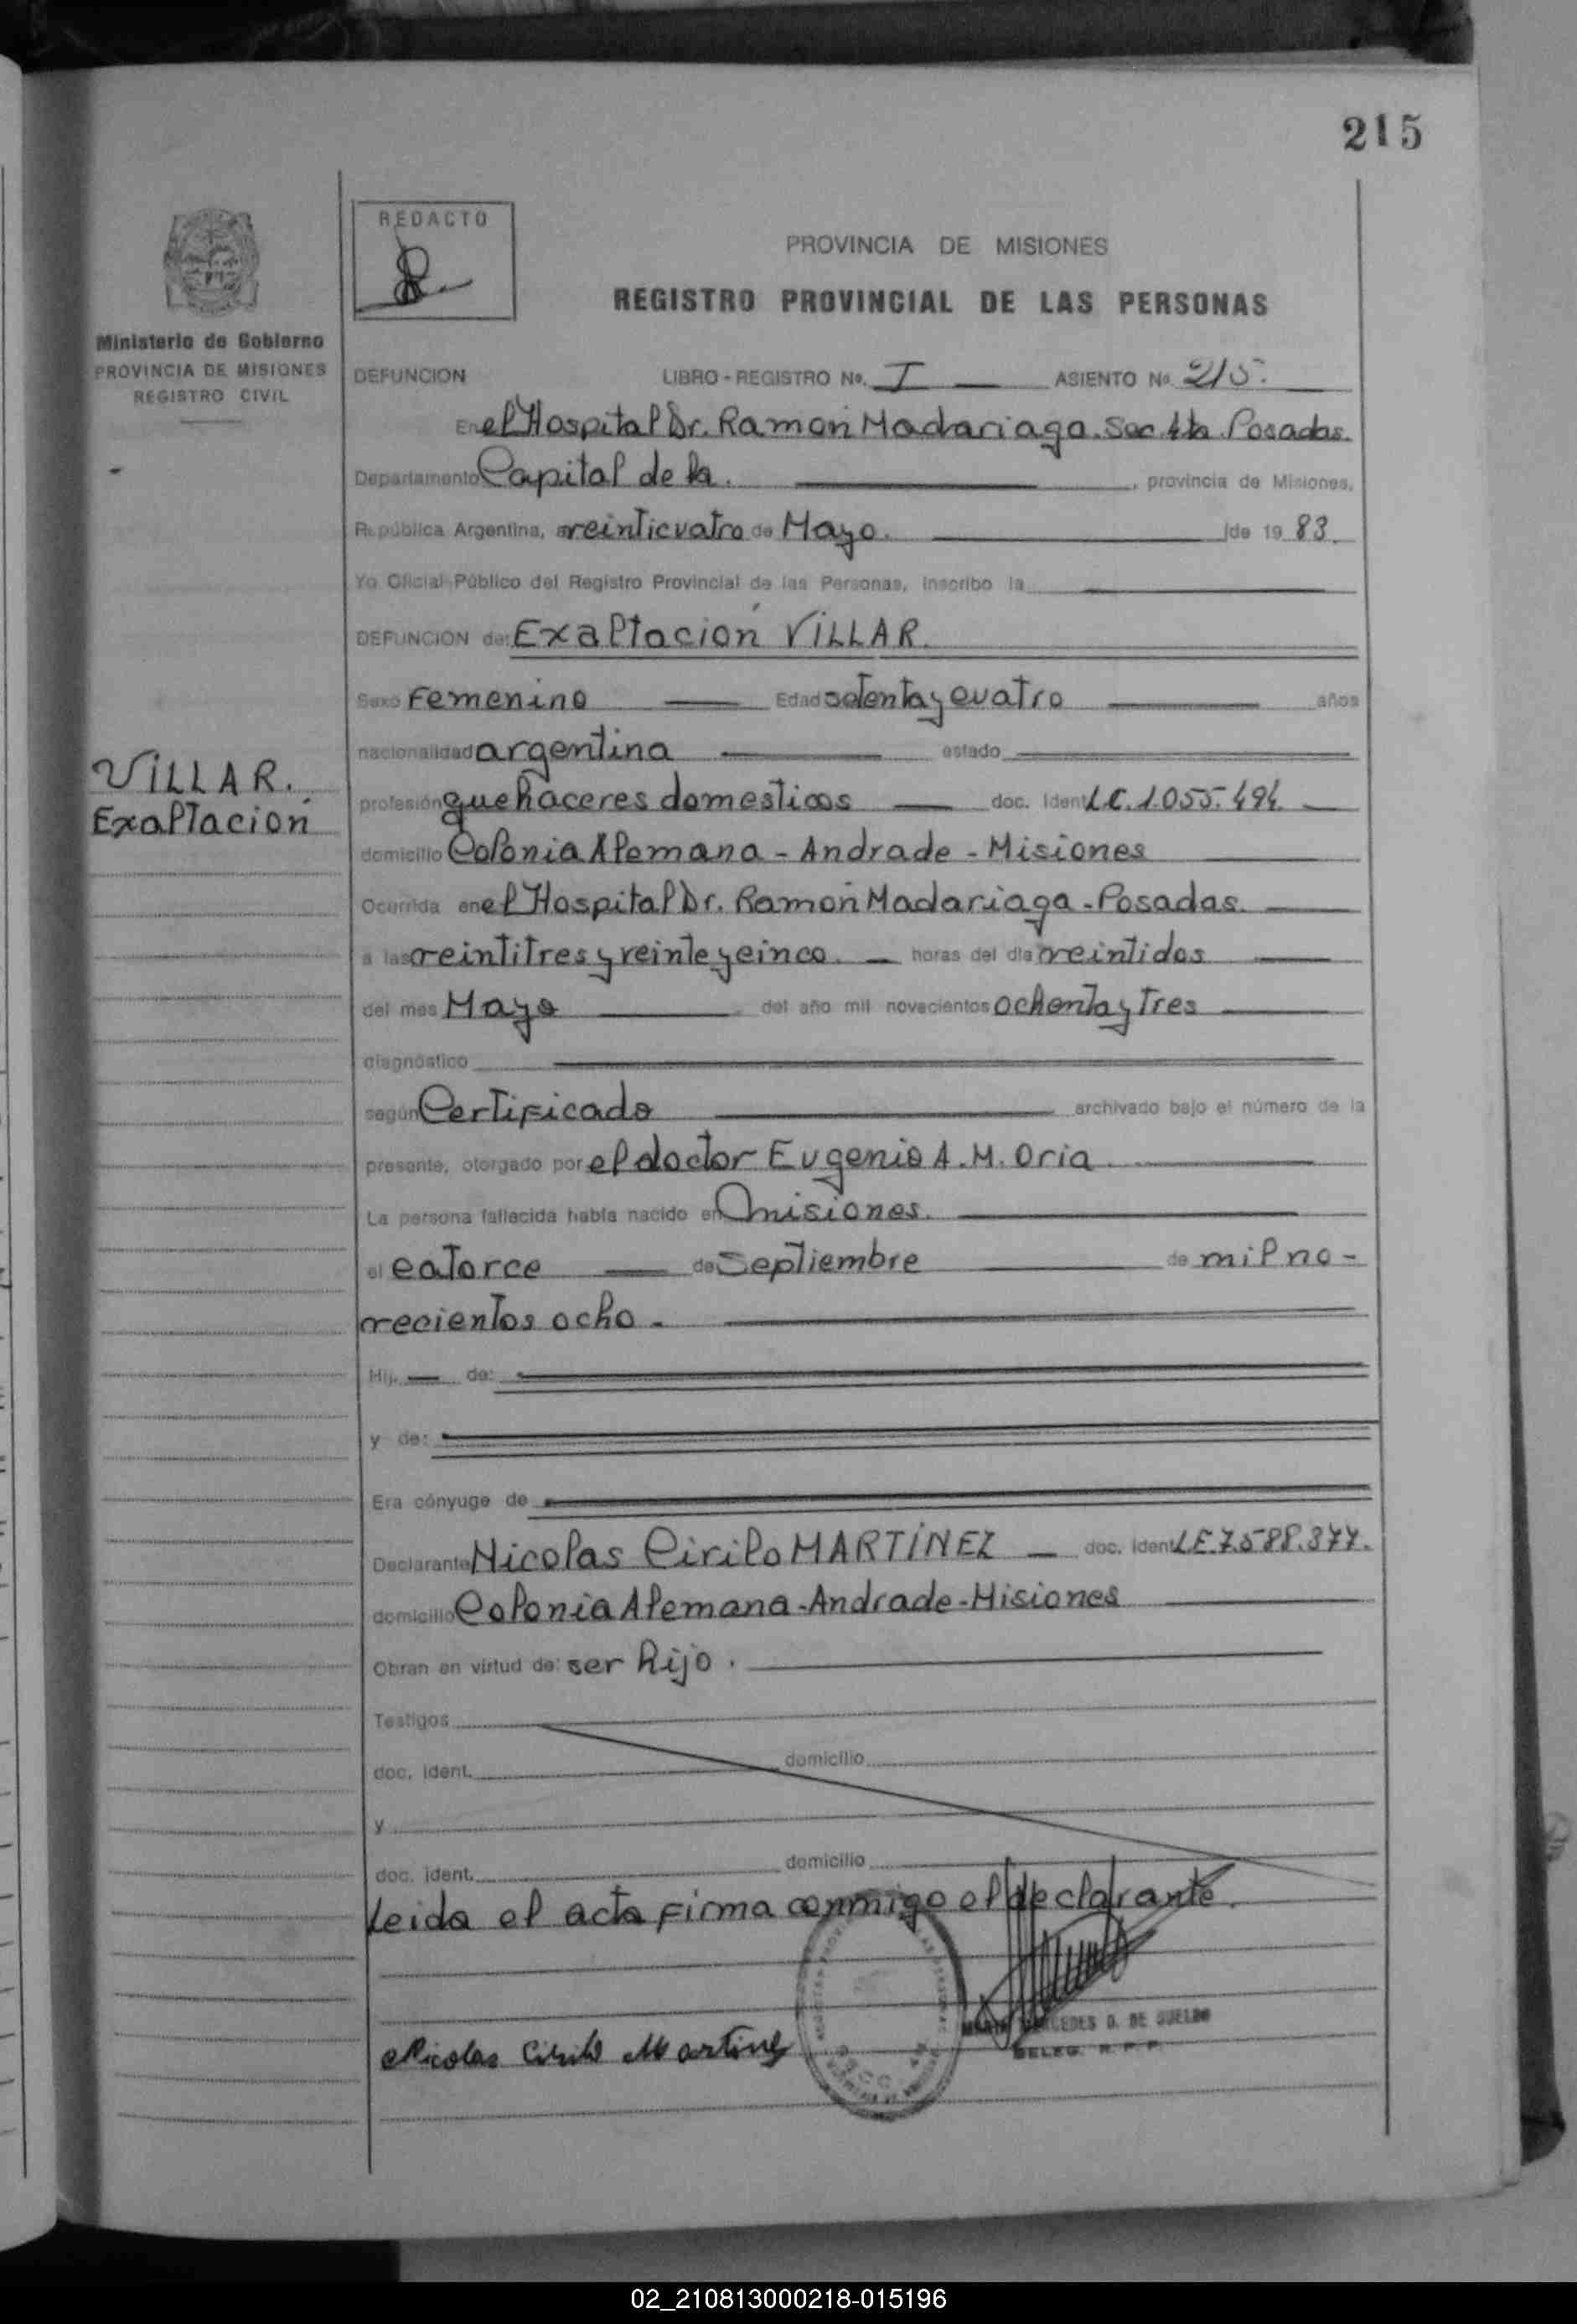 215
REDACTO
PROVINCIA DE MISIONES
REGISTRO PROVINCIAL DE LAS PERSONAS
Ministerio de Gobierno
PROVINCIA DE MISIONES
REGISTRO CIVIL
DEFUNCION LIBRO - REGISTRO No. I ASIENTO No. 215.
En el Hospital Dr. Ramon Madariaga. Sec. 4ta. Posadas.
Departamento Capital de la. , provincia de Misiones,
República Argentina, a veinticuatro de Mayo. de 19 83.
Yo Oficial Público del Registro Provincial de las Personas, inscribo la
DEFUNCION de: Exaltación VILLAR.
Sexo Femenino Edad setenta y cuatro años
nacionalidad argentina estado
VILLAR.
Exaltación
profesión quehaceres domesticos doc. Ident L.C. 1.055.494.
domicilio Colonia Alemana - Andrade - Misiones
Ocurrida en el Hospital Dr. Ramon Madariaga - Posadas.
a las veintitres y veinte y cinco. horas del día veintidos
del mes Mayo del año mil novecientos ochenta y Tres
diagnóstico
según Certificado archivado bajo el número de la
presente, otorgado por el doctor Eugenio A. M. Oria
La persona fallecida había nacido en Misiones.
el catorce de Septiembre de mil no-
vecientos ocho.
Hij de:
y de:
Era cónyuge de
Declarante Nicolas Cirilo MARTÍNEZ doc. ident L.E. 7.588.377.
domicilio Colonia Alemana - Andrade - Misiones
Obran en virtud de: ser hijo.
Testigos
doc. ident. domicilio
y
doc. ident. domicilio
Leida el acta firma conmigo el declarante.
MERCEDES D. DE
DELEG. R. P. P.
Nicolas Cirilo Martinez
02_210813000218-015196